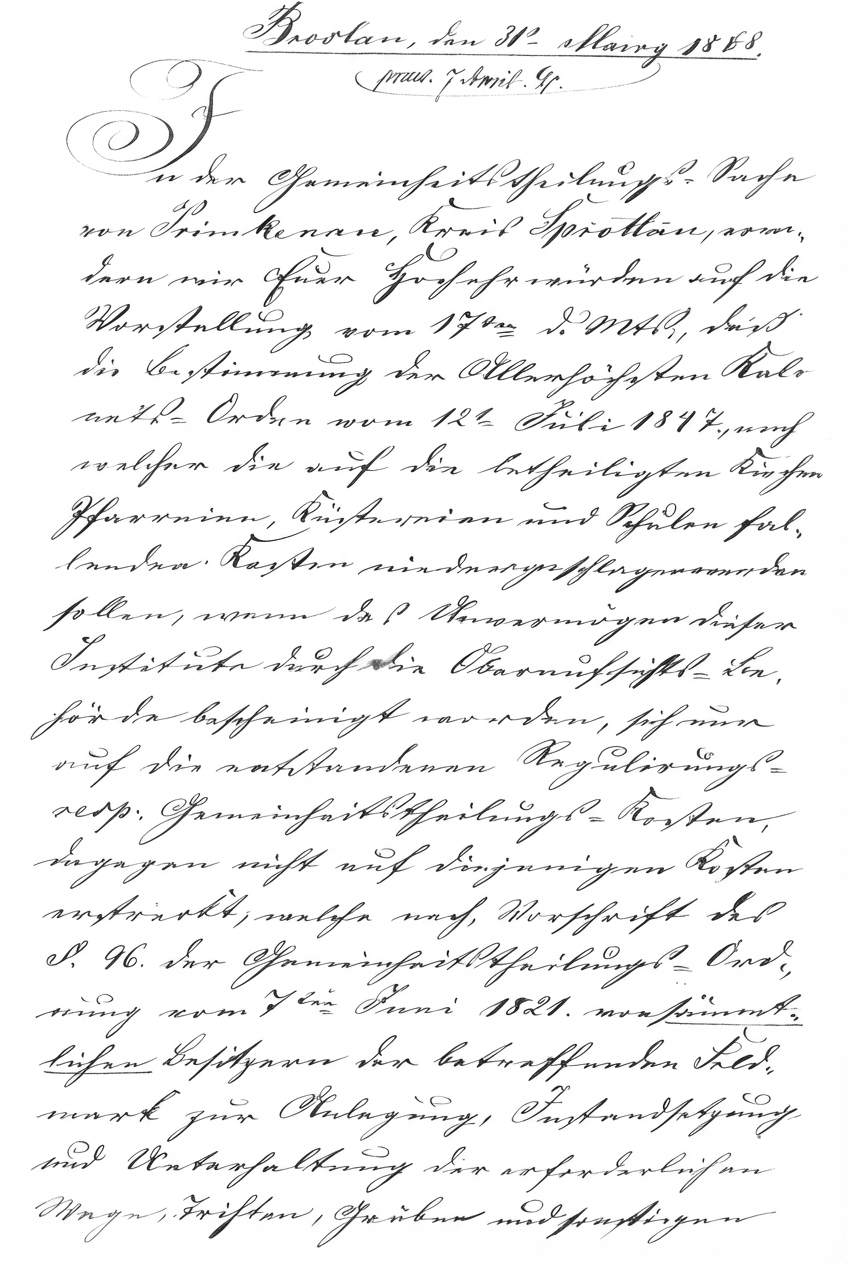 Breslau, den 31t März 1868.
praes. 7 April. c/.
In der Gemeinheitstheilungs-Sache
von Primkenau, Kreis Sprottau, erwi-
dern wir Euer Hochehrwürden auf die
Vorstellung vom 17ten d. Mts., daß
die Bestimmung der Allerhöchsten Kabi
nets-Ordre vom 12t Juli 1847., nach
welcher die auf die betheiligten Kirchen
Pfarreien, Küstereien und Schulen fal-
lenden Kosten niedergeschlagen werden
sollen, wenn das Unvermögen dieser
Institute durch die Oberaufsichts-Be-
hörde bescheinigt worden, sich nur
auf die entstandenen Regulirungs-
resp. Gemeinheitstheilungs-Kosten,
dagegen nicht auf diejenigen Kosten
erstreckt, welche nach Vorschrift des
§. 96. der Gemeinheitstheilungs-Ord-
nung vom 7ten Juni 1821. von sämmt-
lichen Besitzern der betreffenden Feld-
mark zur Anlegung, Instandsetzung
und Unterhaltung der erforderlichen
Wege, Triften, Gräben und sonstigen